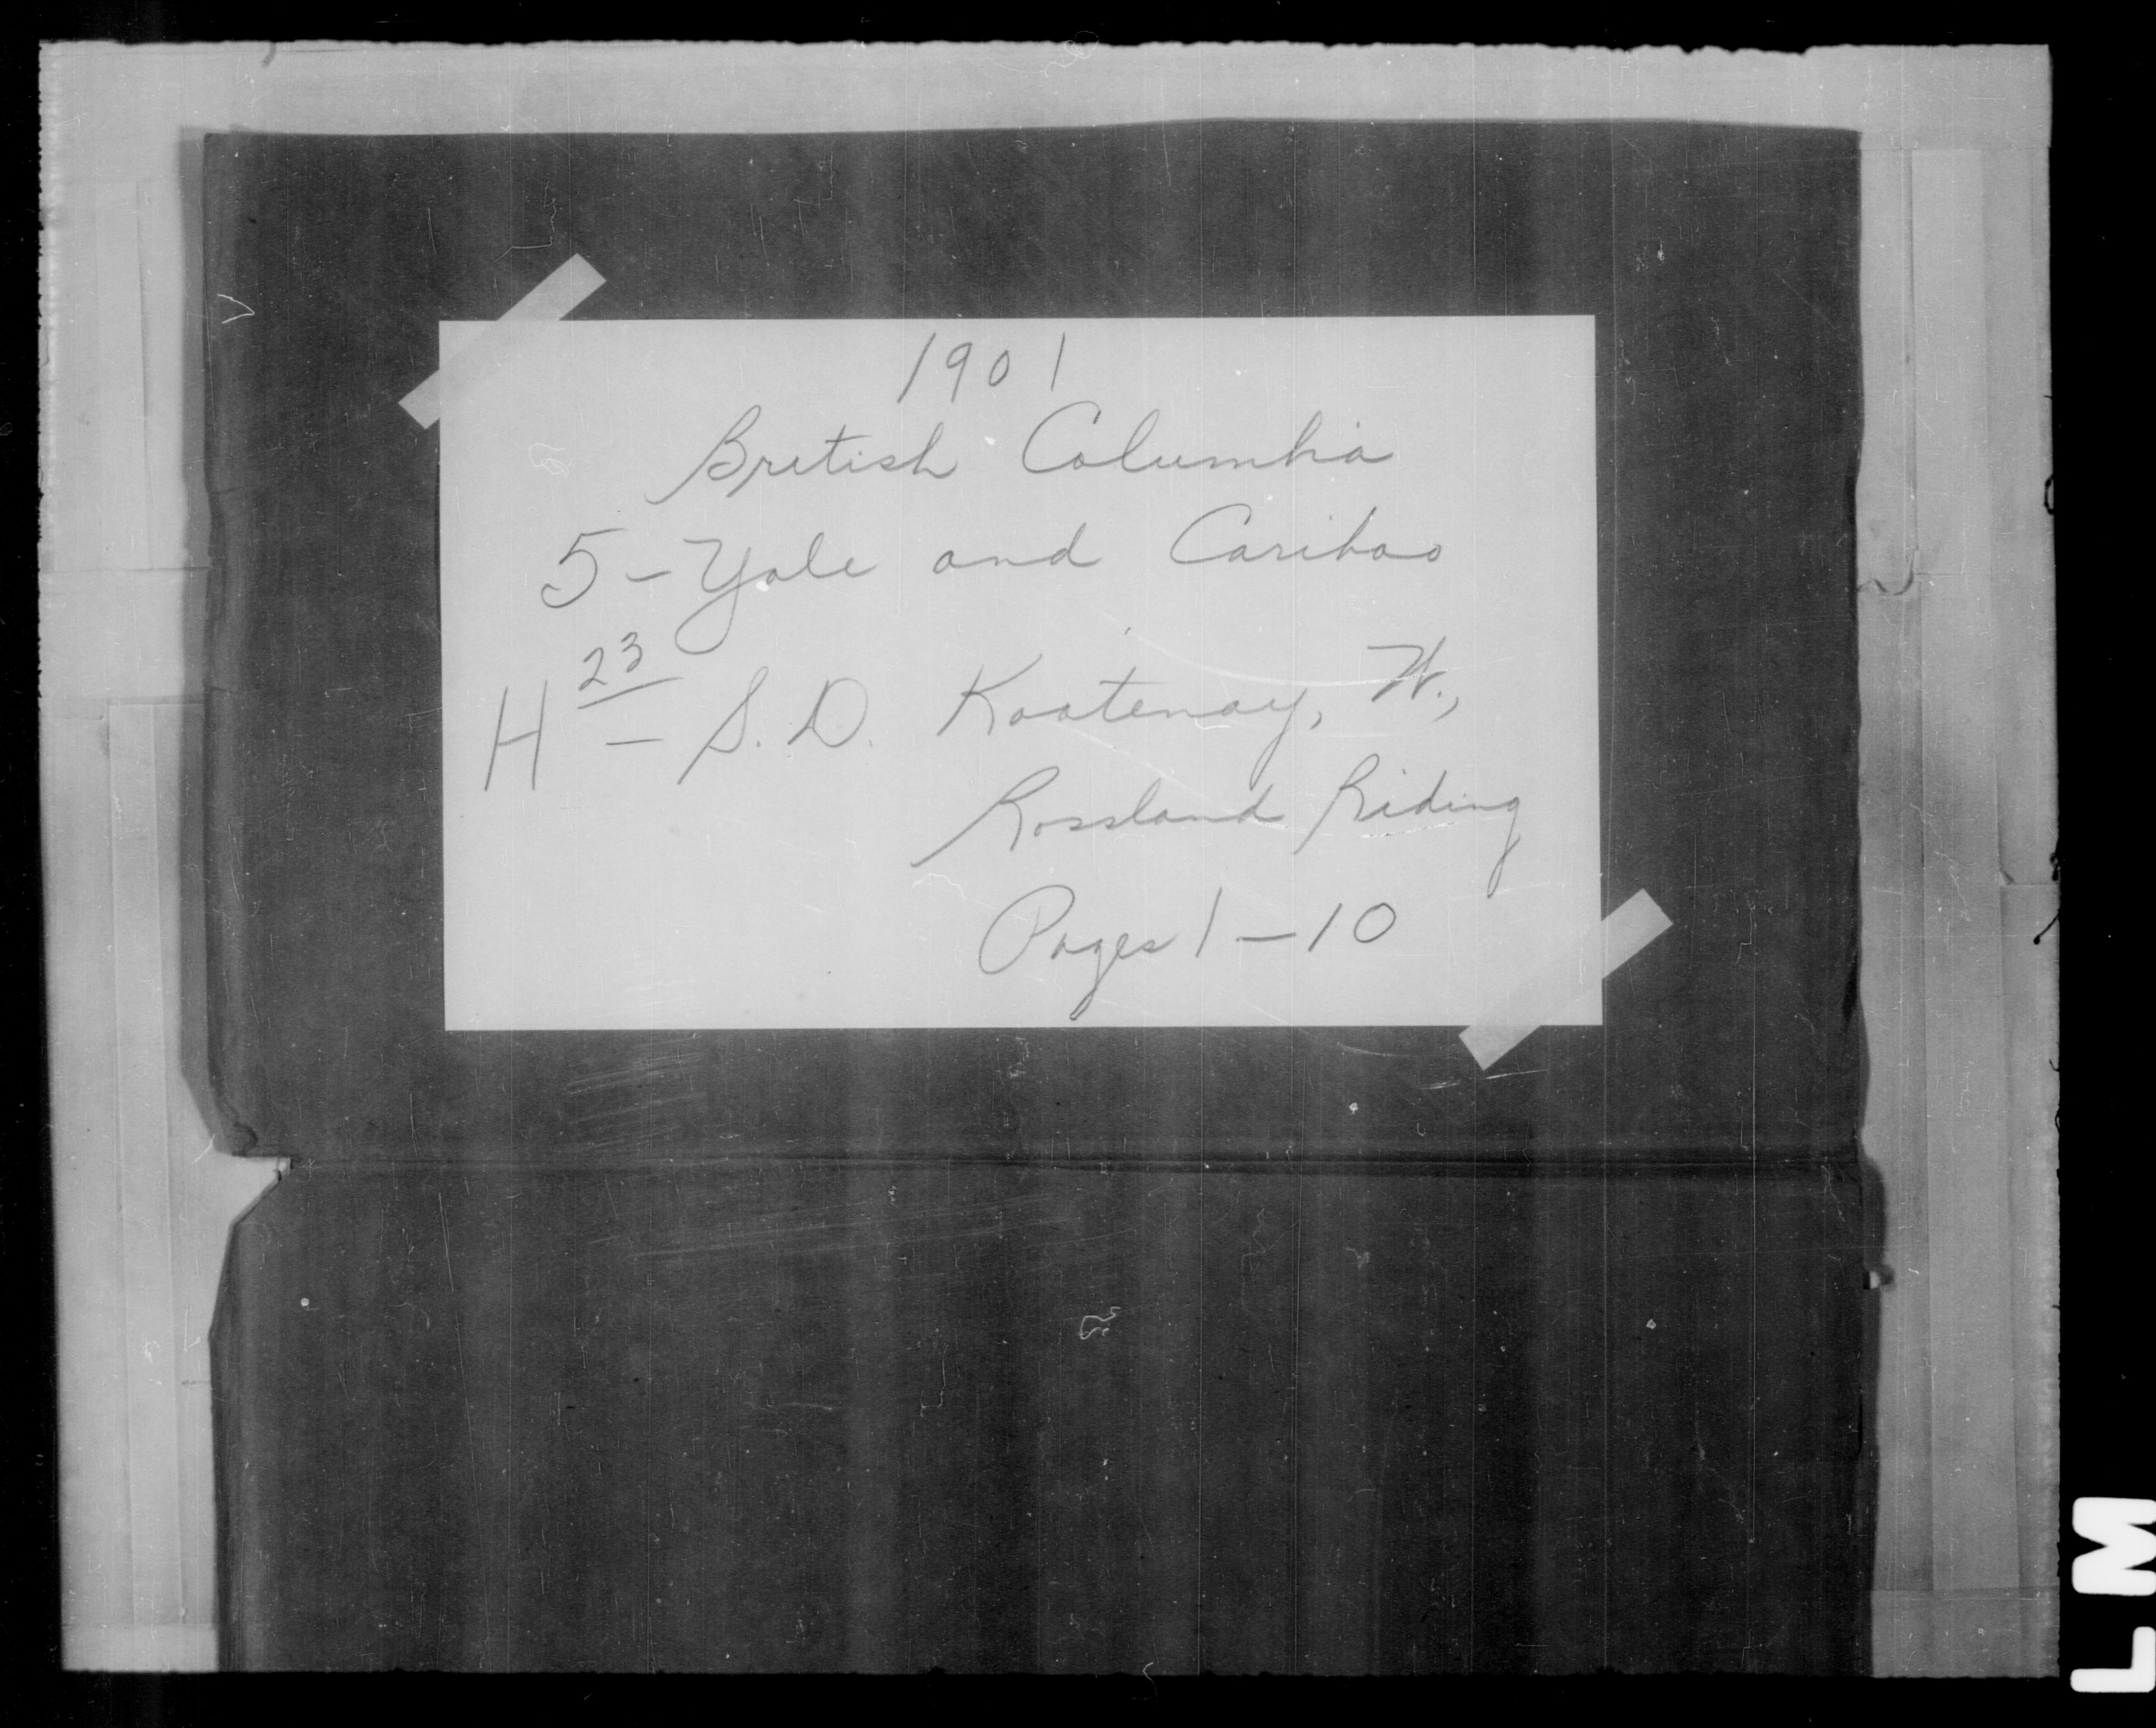 1901
British Columbia
5 - Yale and Cariboo
H 23 - S. D. Kootenay, W.,
Rossland Riding
Pages 1 - 10
LM